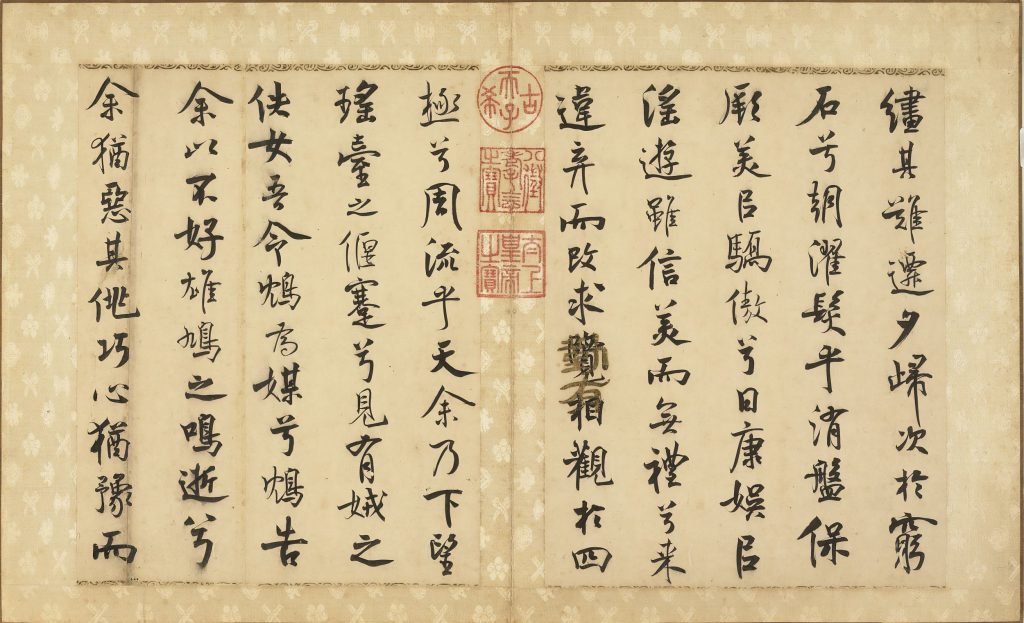 繣其難遷夕歸次於窮
石兮朝濯髮乎洧盤保
厥美以驕傲兮日康娛以
淫遊雖信美而無禮兮来
違弃而改求覽相觀於四
古希天子
八徵耄念之寶
太上皇帝之寶
極兮周流乎天余乃下望
瑤臺之偃蹇兮見有娀之
佚女吾令鴆為媒兮鴆告
余以不好雄鳩之鳴逝兮
余猶惡其佻巧心猶豫而